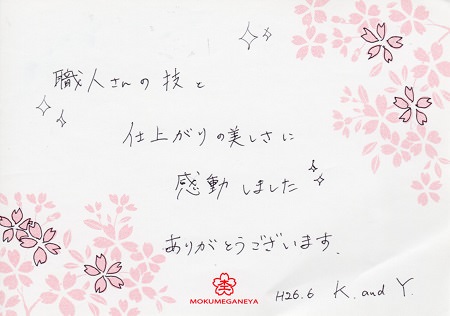 職人さんの技と
仕上がりの美しさに
感動しました
ありがとうございます.
MOKUMEGANEYA
H26.6 K. and Y.